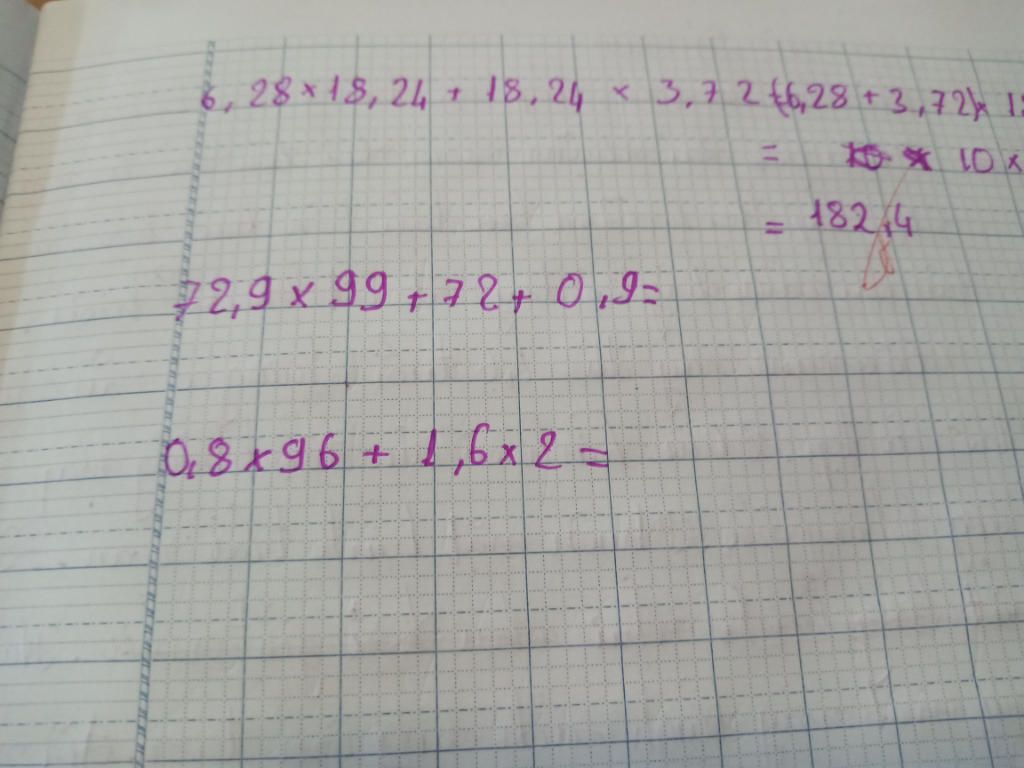 6,28 × 18,24 + 18,24 × 3,72 = (6,28 + 3,72) ×
= 10 ×
= 182,4
72,9 × 99 + 72 + 0,9 =
0,8 × 96 + 1,6 × 2 =